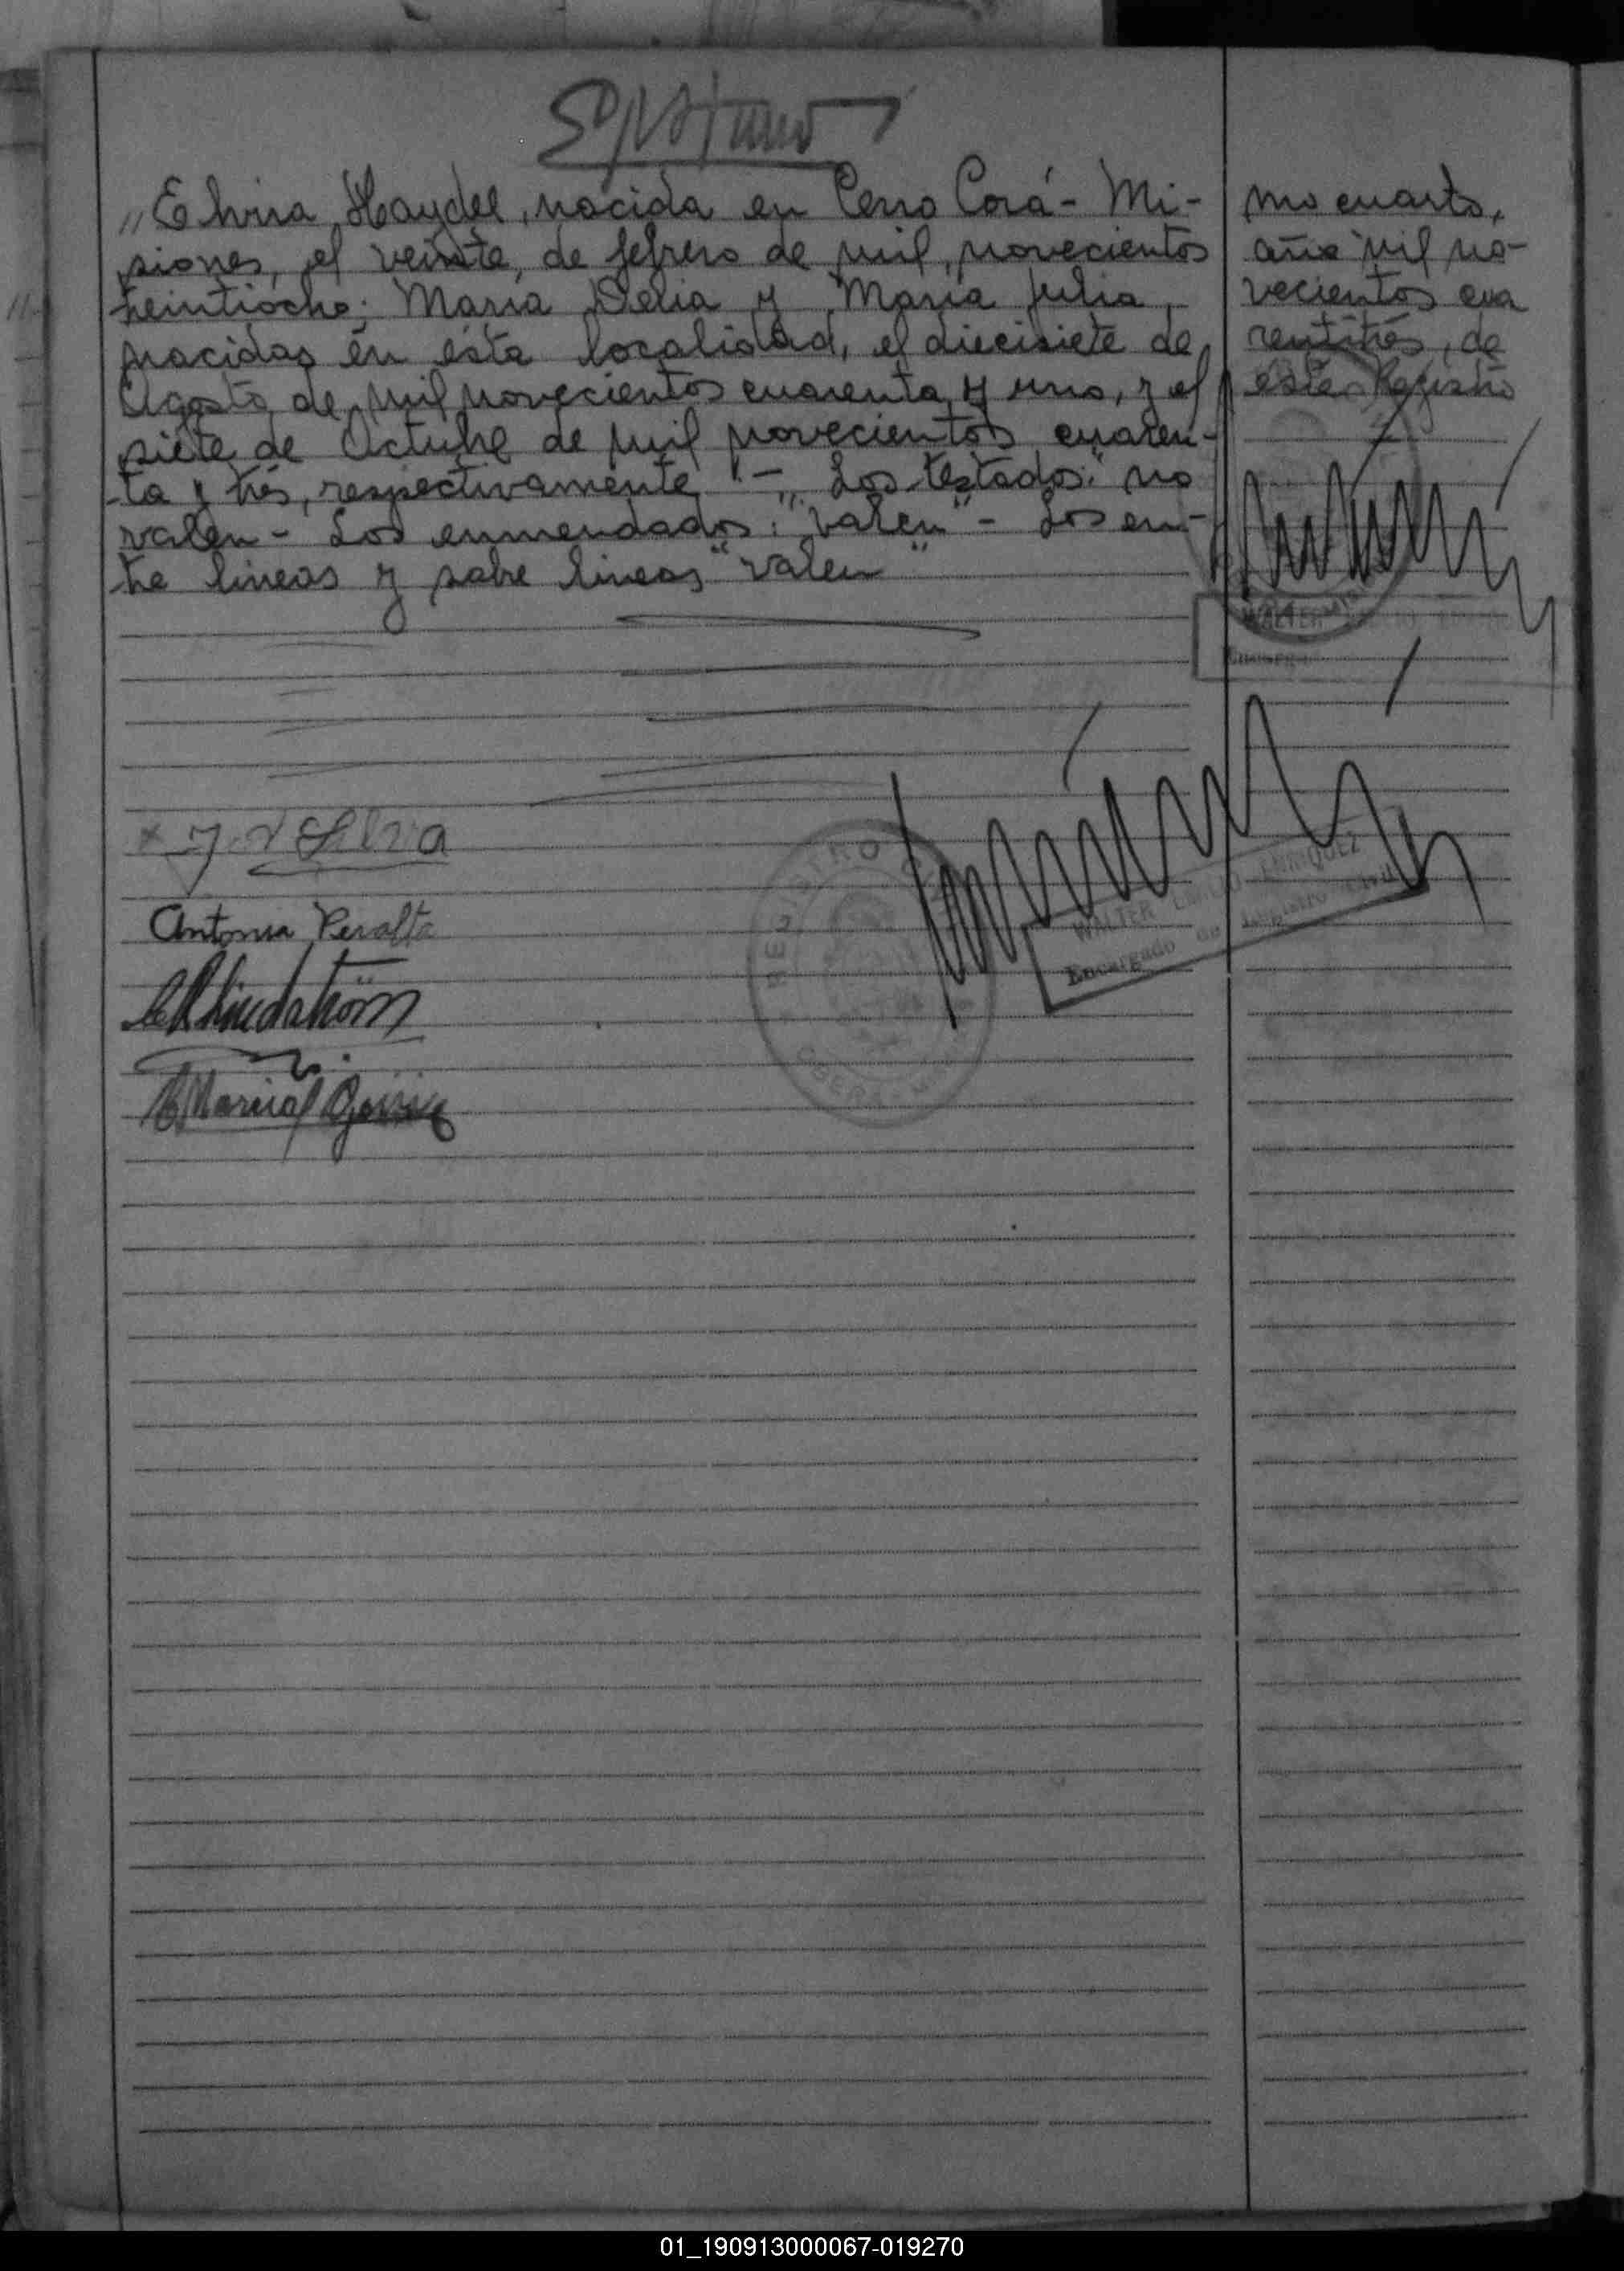 „Elvira Haydee, nacida en Cerro Corá - Mi-
siones, el veinte, de febrero de mil, novecientos
treintiocho; Maria Delia y Maria Julia,
nacidas en ésta localidad, el diecisiete de
Agosto de mil novecientos cuarenta y uno, y el
siete de Octubre de mil novecientos cuaren-
ta y trés, respectivamente "- Los testados: no
valen - Los enmendados: "valen" - Los en-
tre lineas y sobre lineas "valen"
mo cuarto,
año mil no-
vecientos cua
rentitrés, de
este Registro
WALTER
Encarg
x J. Silva
Antonia Peralta
Lindström
Marcial
REGISTRO
OBERA
WALTER EMILIO ENRIQUEZ
Encargado de Registro Civil
01_190913000067-019270